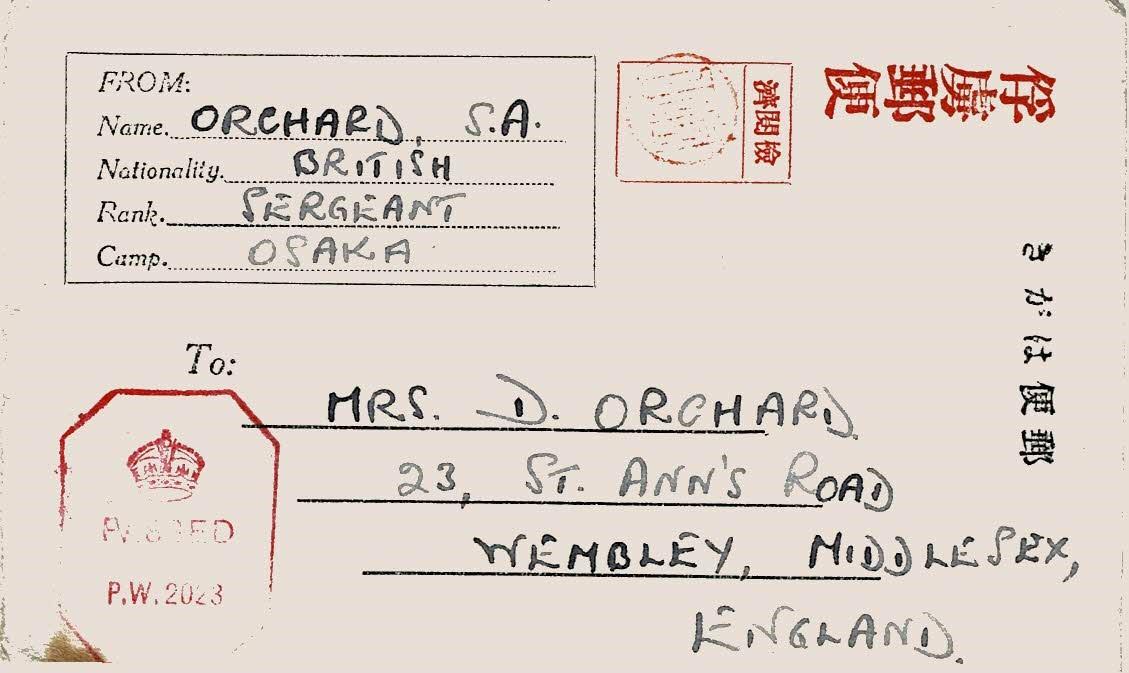 FROM:
Name. ORCHARD, S.A.
Nationality. BRITISH
Rank. SERGEANT
Camp. OSAKA
檢閲濟
俘虜郵便
郵便はがき
To:
MRS. D. ORCHARD
23, ST. ANN'S ROAD
WEMBLEY, MIDDLESEX,
ENGLAND.
PASSED
P.W. 2023